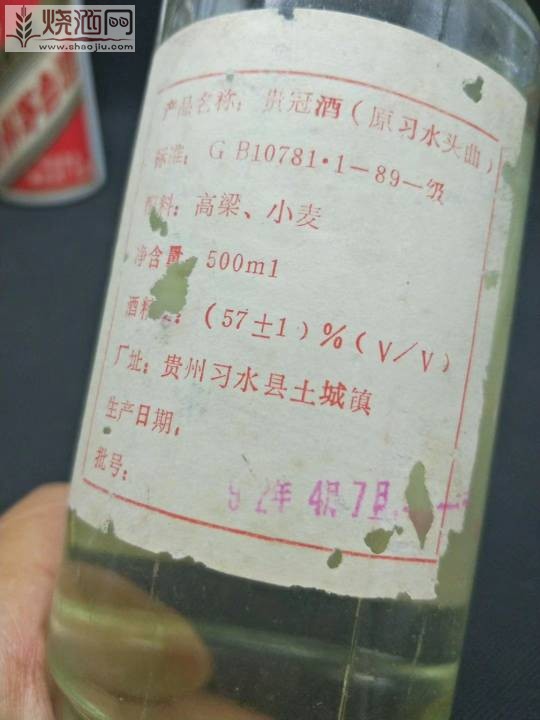 烧酒网
www.shaojiu.com
产品名称：贵冠酒（原习水头曲）
标准：GB10781·1—89一级
料：高梁、小麦
净含量 500ml
酒精 ：（57±1）%（V/V）
厂址：贵州习水县土城镇
生产日期：
批号：
92年 4月 7日